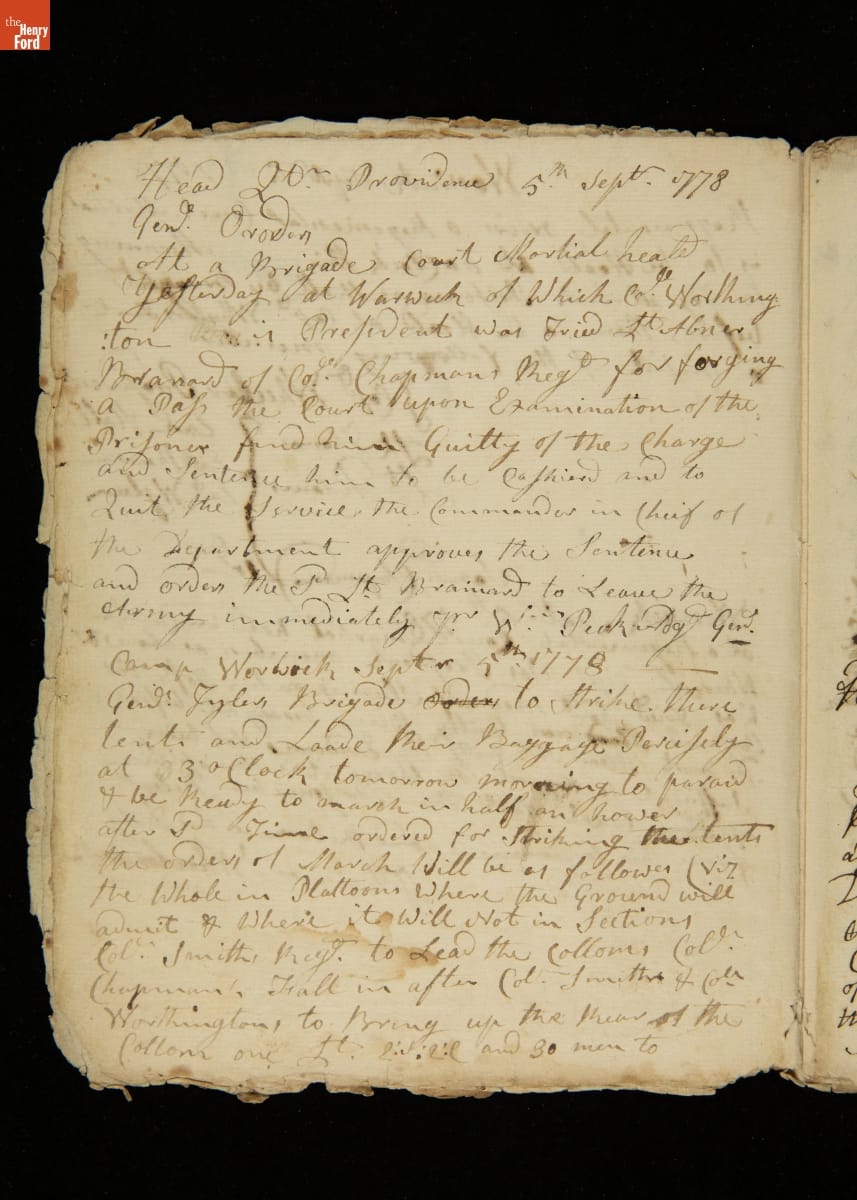 the Henry Ford
Head Qtrs Providence 5th Sept. 1778
Genl. Ororders
At a Brigade Court Martial heald
Yesterday at Warwick of Which Coll. Worthing
:ton is President was Tried Lt Abner
Branard of Coll. Chapmans Regt for forging
a Pass the Court upon Examination of the
Prisoner fund him Guilty of the Charge
and Sentence him to be Cashierd and to
Quit the Service the Commander in Cheif of
the Department approves the Sentence
and orders the S Lt Brainard to Leave the
Army immediately pr Wm. Peck Genl.
Camp Worwick Septr 5th 1778
Genl. Tylers Brigade orders to Strike there
tents and Loade their Baggage Percisely
at 3 oClock tomorrow morning to paraid
& be Ready to march in half an hower
after S Time ordered for Striking the tents
the orders of March Will be as followes (Viz
the Whole in Plattoons Where the Ground will
admit & Where it Will Not in Sections
Coll. Smiths Regt. to Lead the Colloms Coll.
Chapmans Fall in after Col. Smiths & Coll
Worthingtons to Bring up the Rear of the
Collom one Lt. and 30 men to